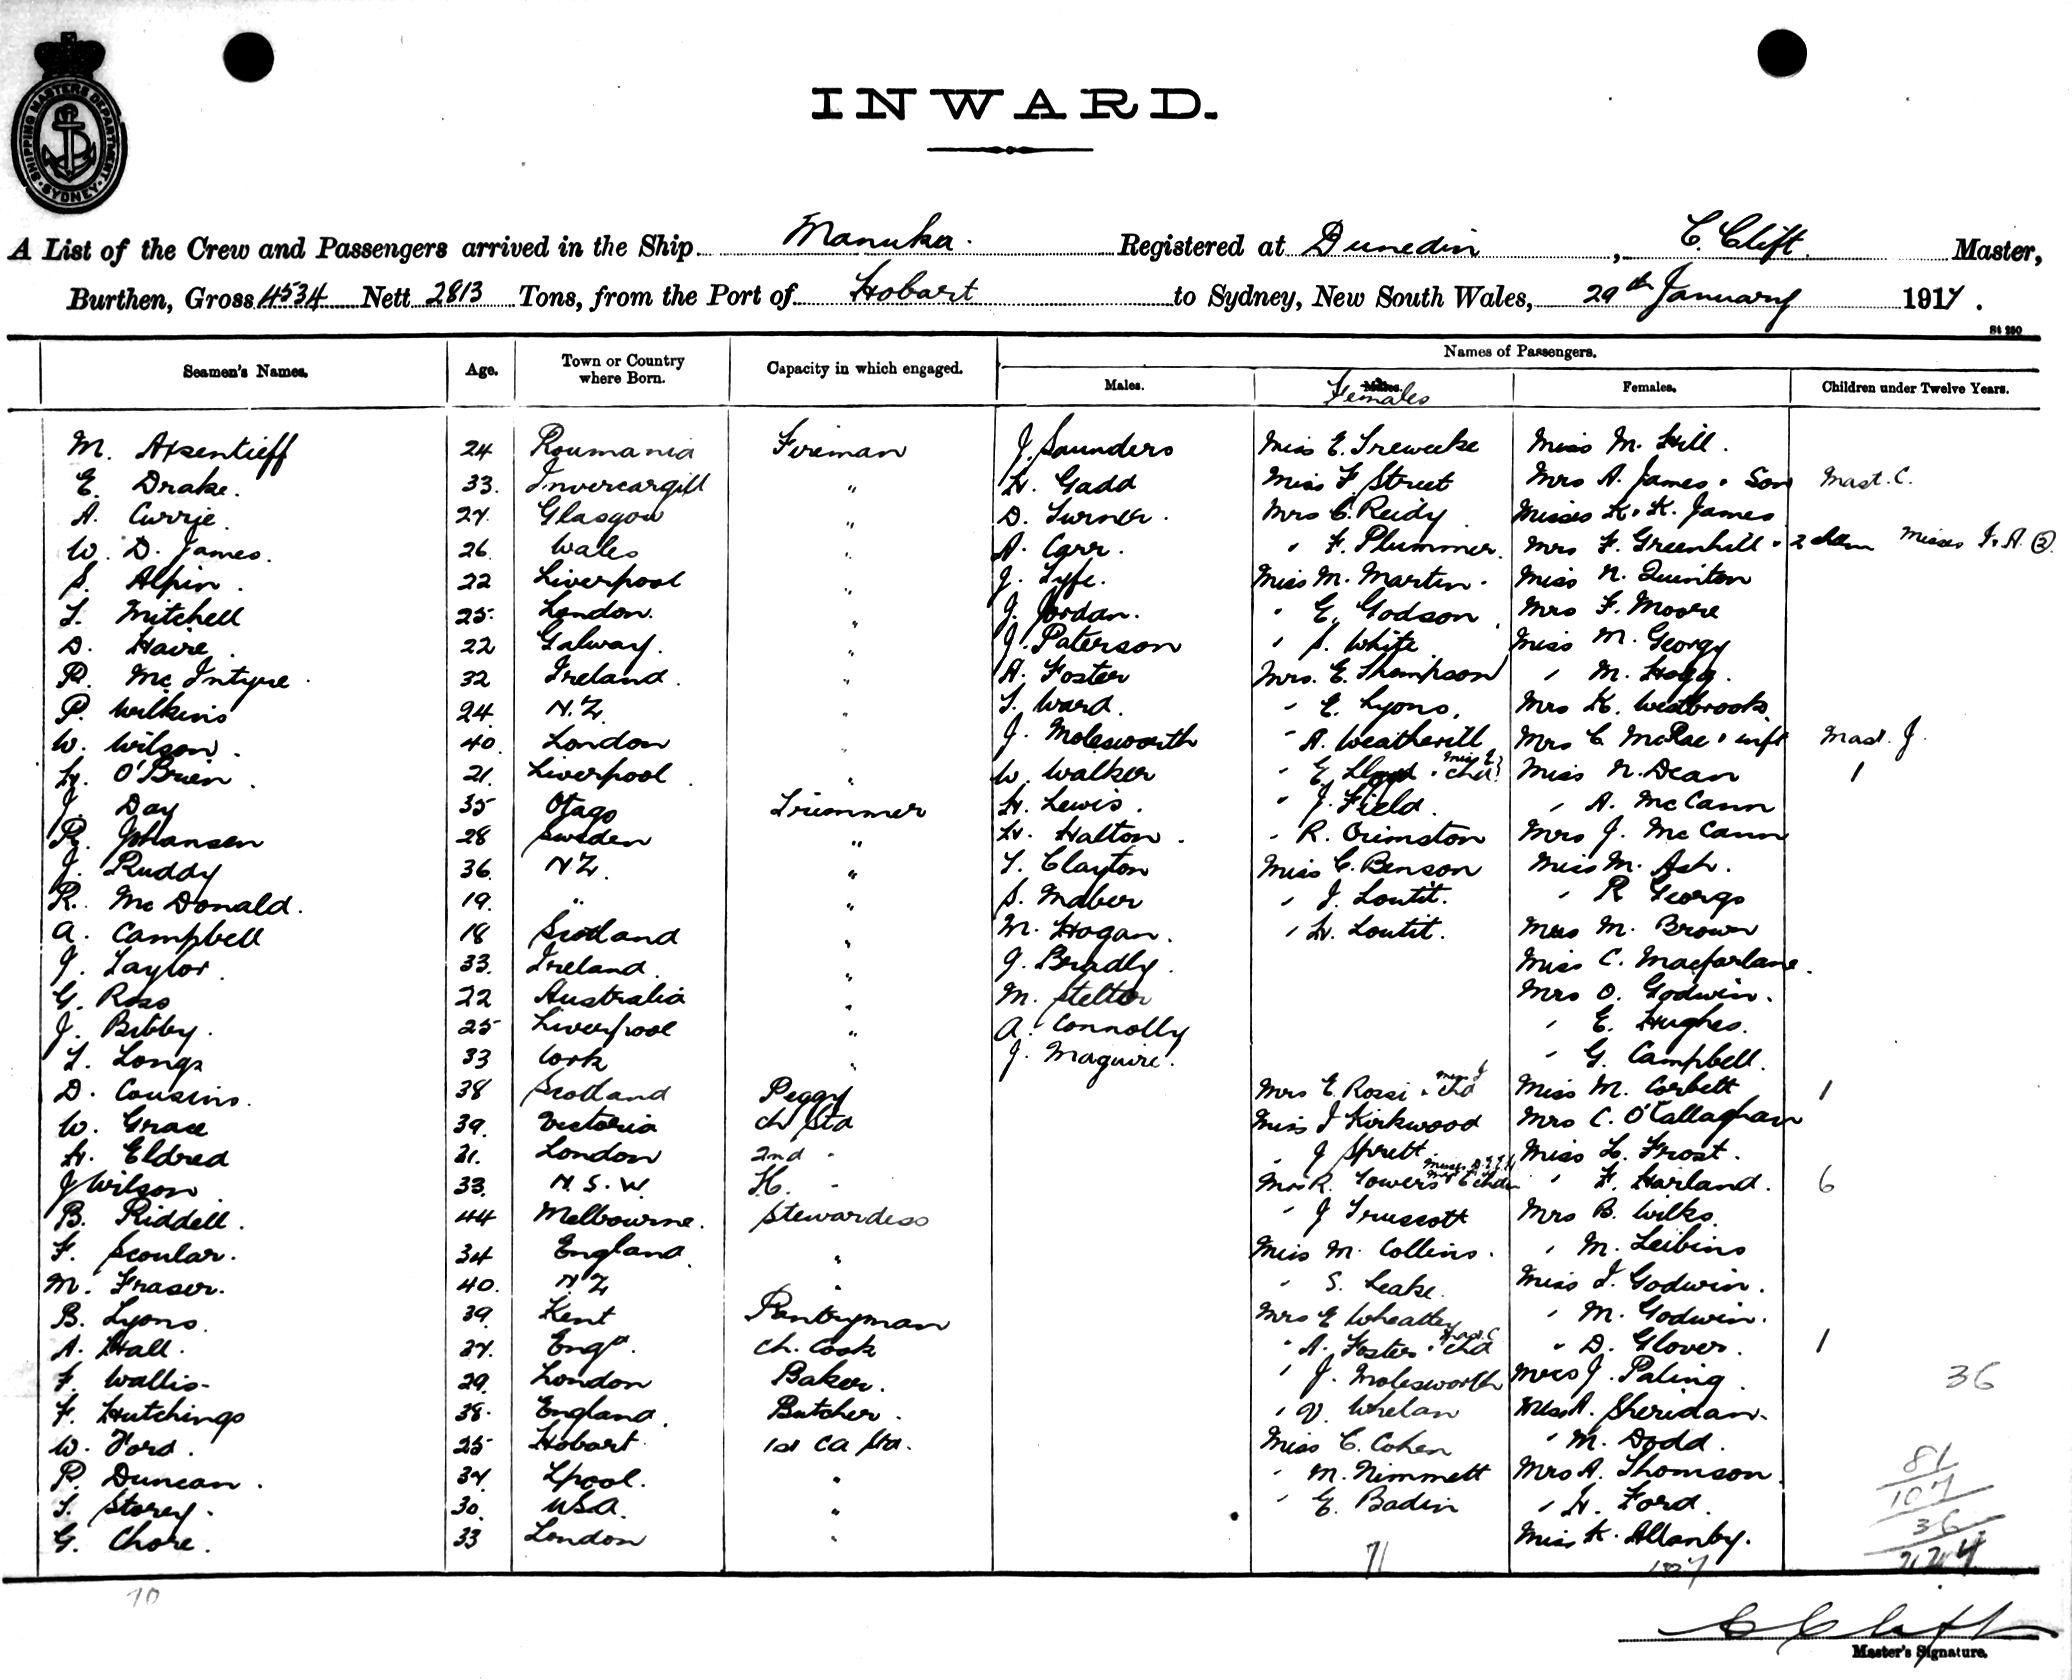 SHIPPING MASTERS DEPARTMENT
SYDNEY
INWARD.
A List of the Crew and Passengers arrived in the Ship Manuka. Registered at Dunedin, C. Clift. Master,
Burthen, Gross 4534 Nett 2813 Tons, from the Port of Hobart to Sydney, New South Wales, 29th January 1917.
St 280
Names of Passengers.
Seamen's Names. Age. Town or Country where Born. Capacity in which engaged. Males. Males. Females Females. Children under Twelve Years.
M. Arsentieff 24 Roumania Fireman J. Saunders Miss E. Treweeke Miss M. Hill.
E. Drake. 33. Invercargill " H. Gadd Miss F. Street Mrs A. James & Son Mast. C.
A. Currie. 27. Glasgow " D. Turner. Mrs C. Reidy Misses K. & K. James
W. D. James. 26. Wales " A. Carr. " F. Plummer. Mrs F. Greenhill & 2 chdn Misses I. A. (2)
S. Alpin. 22 Liverpool " J. Fyfe. Miss M. Martin. Miss N. Quinton
T. Mitchell 25. London. " J. Jordan. " E. Godson. Mrs F. Moore
D. Haire. 22 Galway. " J. Paterson " S. White Miss M. Georgy
R. McIntyre. 32 Ireland. " A. Foster Mrs. E. Thompson " M. Hogg.
P. Wilkins 24. N.Z. " T. Ward. " E. Lyons. Mrs K. Westbrook
W. Wilson. 40. London " J. Molesworth " A. Weatherill Mrs C. McRae & inft Mast. J.
H. O'Brien. 21. Liverpool. " W. Walker " E. Lloyd & chd Miss E. Miss N. Dean 1
J. Day 35 Otago Trimmer H. Lewis. " J. Field. " A. McCann
R. Johansen 28 Sweden " H. Halton. " R. Orimston Mrs J. McCann
J. Ruddy 36. N.Z. " T. Clayton Miss C. Benson Miss M. Ash.
R. McDonald. 19. " " S. Maber " J. Loutit. " R Georgs
A. Campbell 18 Scotland " M. Hogan. " H. Loutit. Mrs M. Brown
J. Taylor. 33. Ireland. " J. Bradly. Miss C. Macfarlane.
G. Ross 22 Australia " M. Stelter Mrs O. Godwin.
J. Bibby. 25 Liverpool " A. Connolly " E. Hughes.
T. Long 33 Cork " J. Maguire. " G. Campbell.
D. Cousins. 38 Scotland Peggy Mrs E. Rossi & chd Miss J Miss M. Corbett 1
W. Grace 39. Victoria Ch Std Miss I Kirkwood Mrs C. O'Callaghan
H. Eldred 31. London 2nd " " J Sprett Miss L. Frost.
J Wilson 33. N.S.W. " Mrs R. Towers " F. Harland. 6
B. Riddell. 44 Melbourne. Stewardess " J Truscott Mrs B. Wilks.
F. Scoular. 34 England. " Miss M. Collins. " M. Leibins
M. Fraser. 40. N.Z " " S. Leake. Miss I. Godwin.
B. Lyons. 39. Kent Pantryman Mrs E Wheatley " M. Godwin.
A. Hall. 37. Engd. Ch. Cook " A. Foster & chd Mast. C " D. Glover. 1
F. Wallis- 29. London Baker. " J. Molesworth Mrs J. Paling.
36
F. Hutchings 38. England. Butcher. " V. Whelan Miss A. Sheridan.
W. Ford. 25 Hobart. 1st Ca Std. Miss C. Cohen " M. Dodd.
81
P. Duncan. 37. Lpool. " " M. Nimmett Mrs A. Thomson.
107
T. Storey. 30. USA. " " E. Badin " H. Ford.
36
G. Chore. 33 London " Miss K. Allanby.
71 107 224
70
C Clift
Master's Signature.